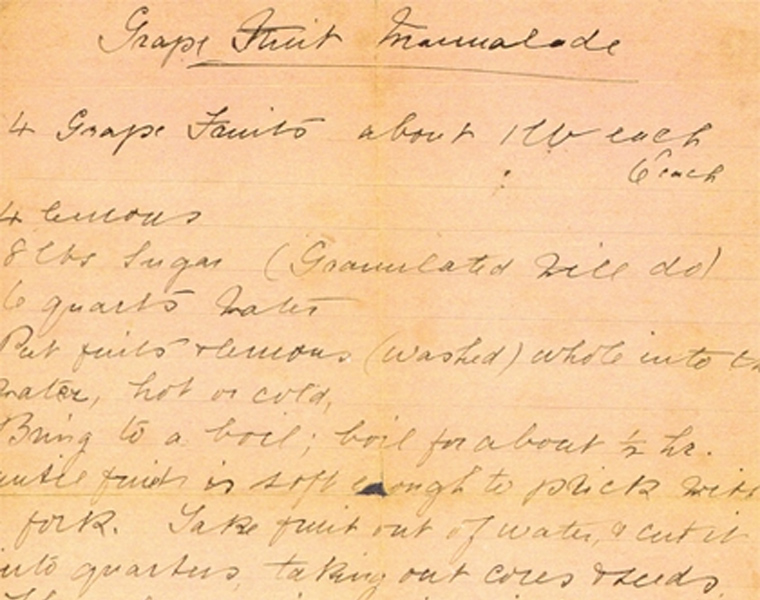 Grape Fruit Marmalade
4 Grape Fruits about 1 lb each
6 each
4 lemons
8 lbs Sugar (Granulated will do)
6 quarts water
Put fruits & lemons (washed) whole into th
water, hot or cold,
Bring to a boil; boil for about ½ hr.
until fruit is soft enough to prick with
fork. Take fruit out of water, & cut it
into quarters, taking out cores & seeds.